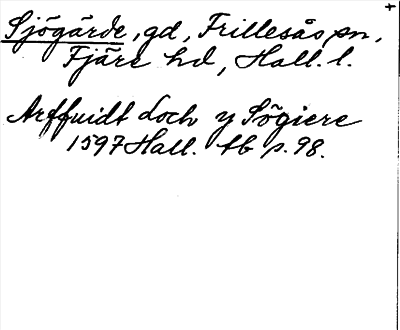 Sjögärde, gd, Frillesås sn,
Fjäre hd, Hall. l.
Arffuidt Loch y Sögiere
1597 Hall. tb p. 98.